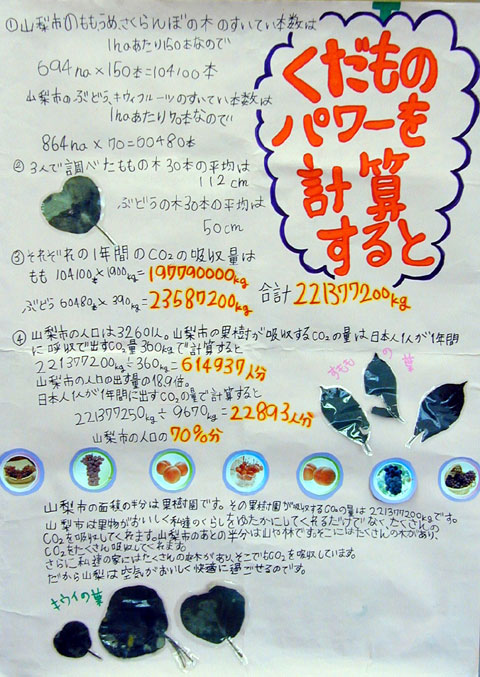 くだもの
パワーを
計算
すると
①山梨市のももうめさくらんぼの木のすいてい本数は
1haあたり150本なので
694ha×150本=104100本
山梨市のぶどう、キウィフルーツのすいてい本数は
1haあたり70本なので
864ha×70=60480本
②3人で調べたももの木30本の平均は
112cm
ぶどうの木30本の平均は
50cm
③それぞれの1年間のCO2の吸収量は
もも 104100本×1900kg=197790000kg
ぶどう 60480本×390kg=23587200kg 合計221377200kg
④山梨市の人口は32601人。山梨市の果樹が吸収するCO2の量は日本人1人が1年間
に呼吸で出すCO2量360kgで計算すると
221377200kg÷360kg=614937人分
山梨市の人口の出す量の18.9倍。
日本人1人が1年間に出すCO2の量で計算すると
221377250kg÷9670kg=22893人分
山梨市の人口の70%分
すももの葉
山梨市の面積の半分は果樹園です。その果樹園が吸収するCO2の量は221377200kgです。
山梨市は果物がおいしく私達のくらしをゆたかにしてくれるだけでなく、たくさんの
CO2を吸収してくれます。山梨市のあとの半分は山や林です。そこにはたくさんの木があり、
CO2をたくさん吸収してくれます。
さらに私達の家にはたくさんの庭木があり、そこでもCO2を吸収しています。
だから山梨は空気がおいしく快適に過ごせるのです。
キウイの葉